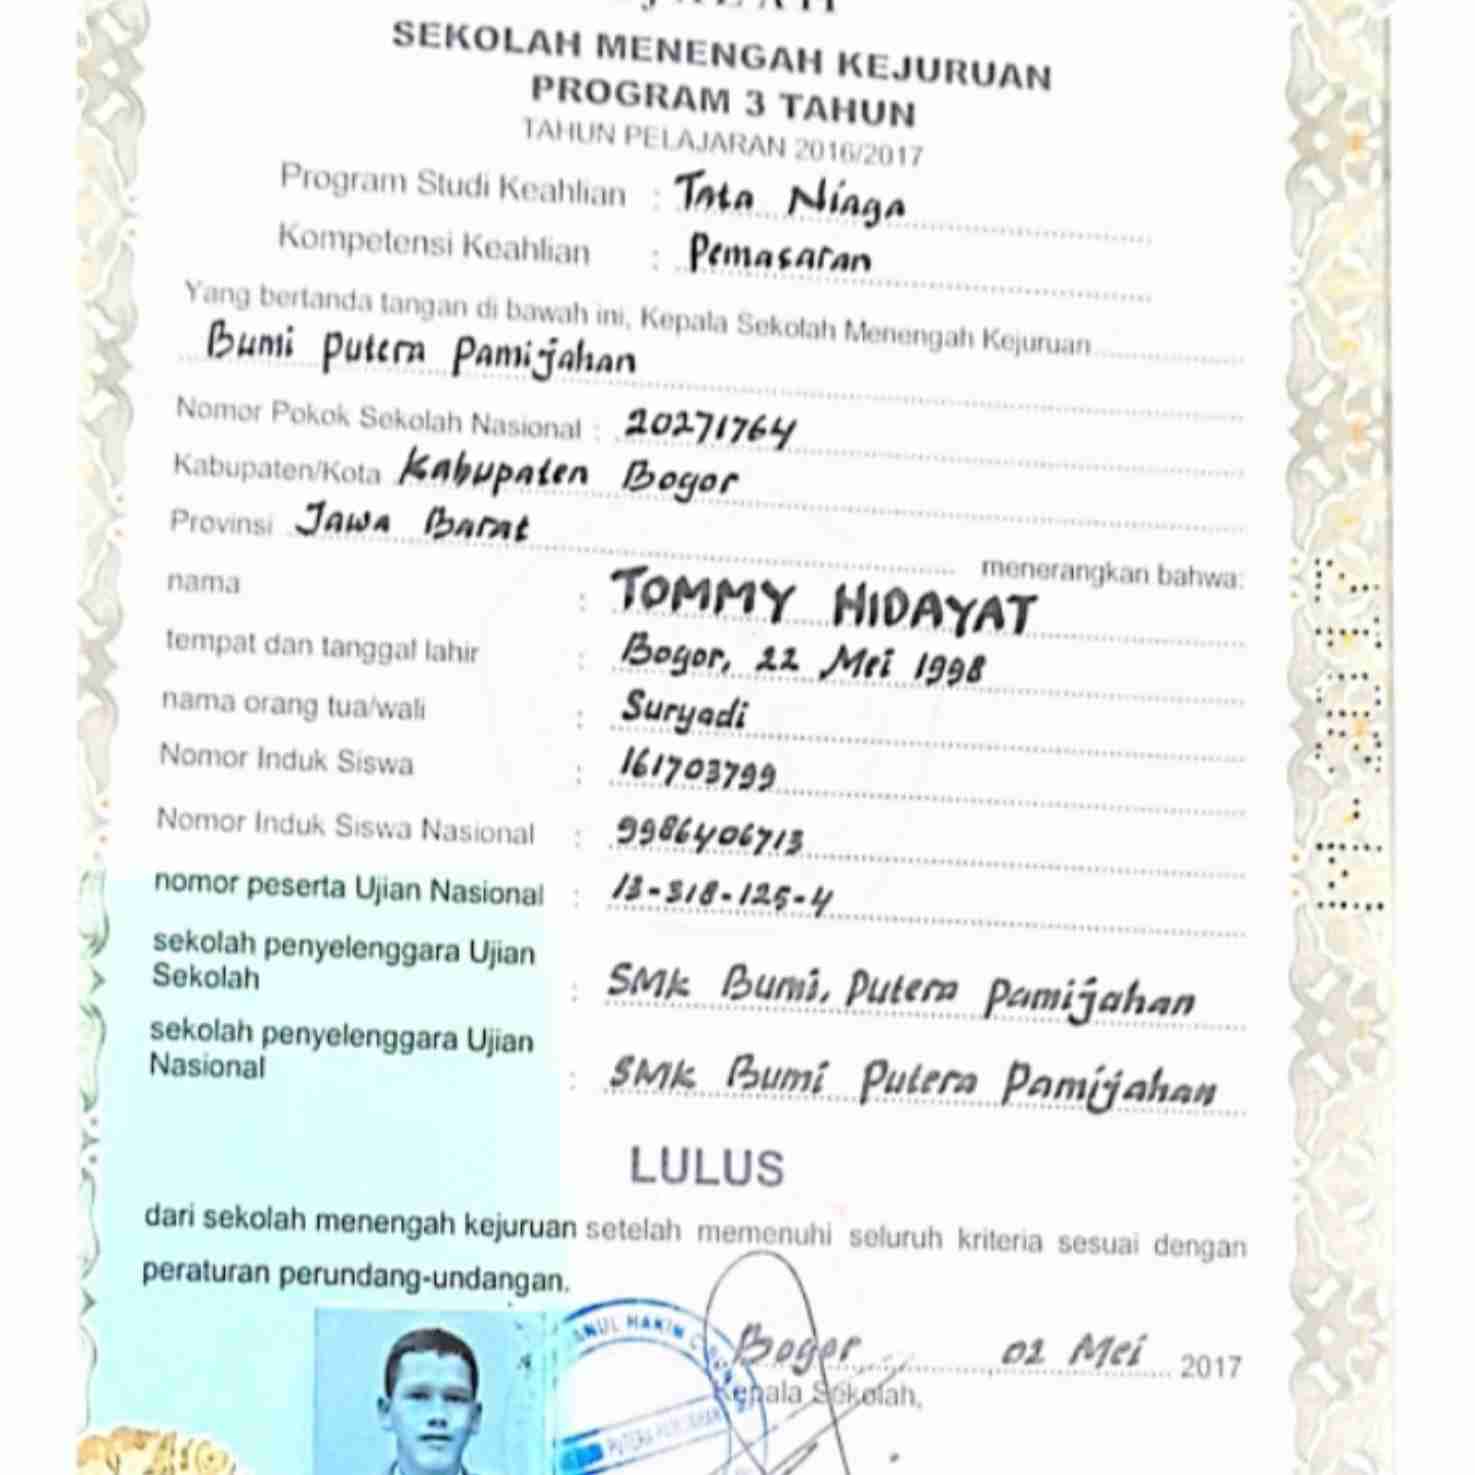 SEKOLAH MENENGAH KEJURUAN
PROGRAM 3 TAHUN
TAHUN PELAJARAN 2016/2017
Program Studi Keahlian : Tata Niaga
Kompetensi Keahlian : Pemasaran
Yang bertanda tangan di bawah ini, Kepala Sekolah Menengah Kejuruan
Bumi Putera Pamijahan
Nomor Pokok Sekolah Nasional : 20271764
Kabupaten/Kota Kabupaten Bogor
Provinsi Jawa Barat menerangkan bahwa:
nama : TOMMY HIDAYAT
tempat dan tanggal lahir : Bogor, 22 Mei 1998
nama orang tua/wali : Suryadi
Nomor Induk Siswa : 161703799
Nomor Induk Siswa Nasional : 9986406713
nomor peserta Ujian Nasional : 13-318-125-4
sekolah penyelenggara Ujian
Sekolah : SMK Bumi, Putera Pamijahan
sekolah penyelenggara Ujian
Nasional : SMK Bumi Putera Pamijahan
LULUS
dari sekolah menengah kejuruan setelah memenuhi seluruh kriteria sesuai dengan
peraturan perundang-undangan.
Bogor 02 Mei 2017
Kepala Sekolah,